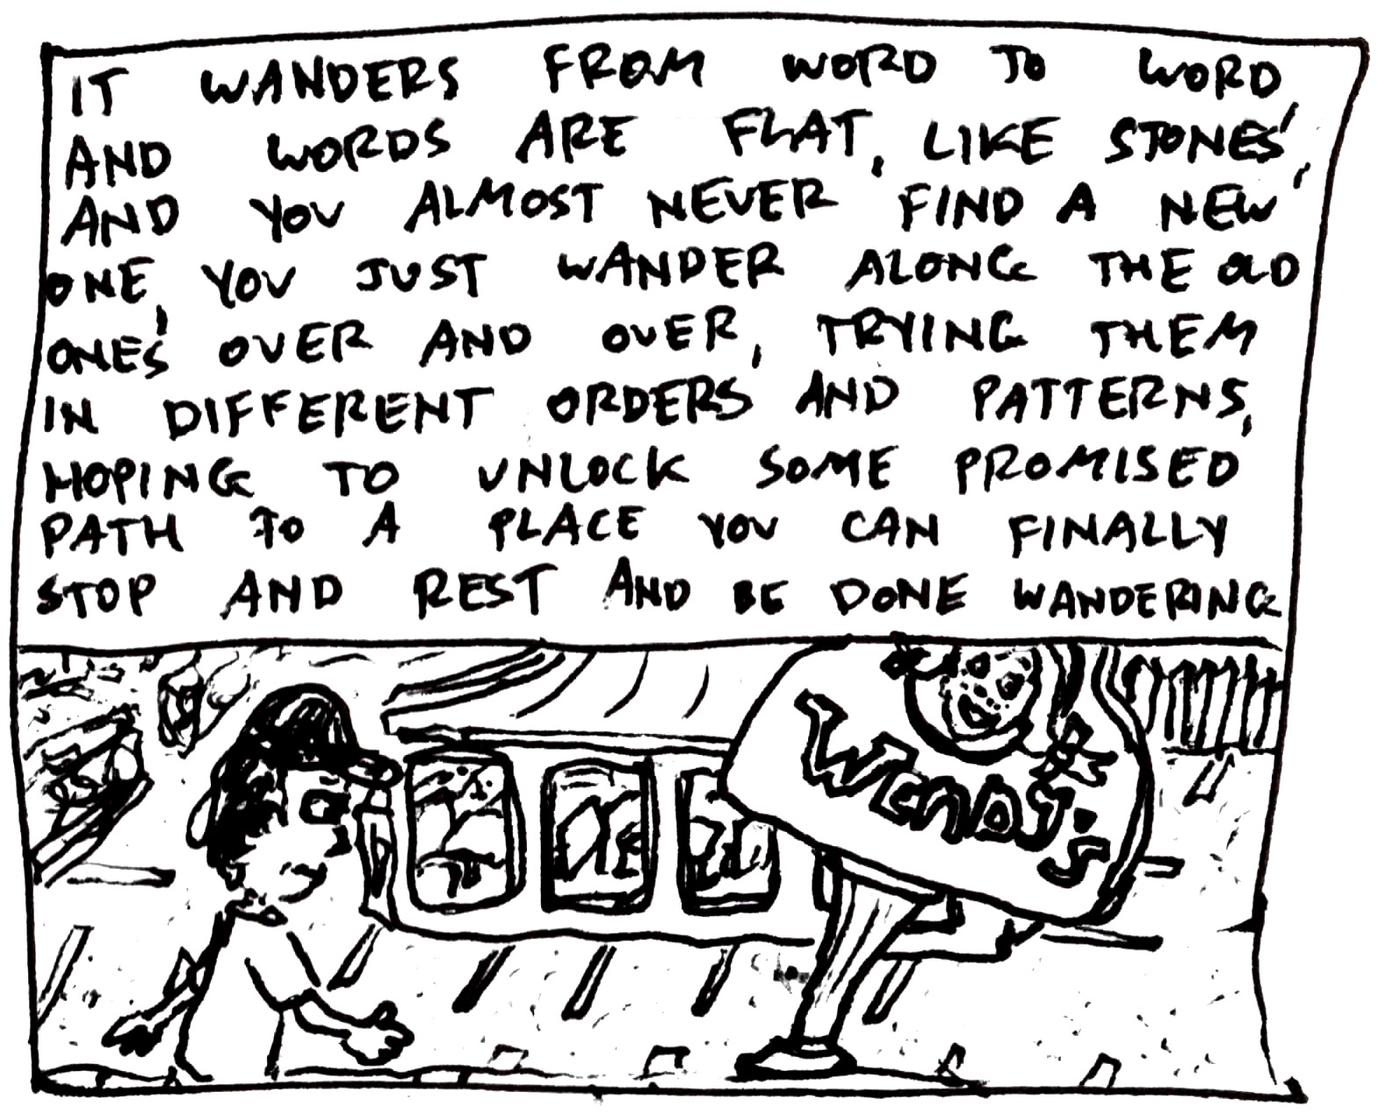 IT WANDERS FROM WORD TO WORD,
AND WORDS ARE FLAT, LIKE STONES,
AND YOU ALMOST NEVER FIND A NEW
ONE, YOU JUST WANDER ALONG THE OLD
ONES OVER AND OVER, TRYING THEM
IN DIFFERENT ORDERS AND PATTERNS,
HOPING TO UNLOCK SOME PROMISED
PATH TO A PLACE YOU CAN FINALLY
STOP AND REST AND BE DONE WANDERING
WENDY'S